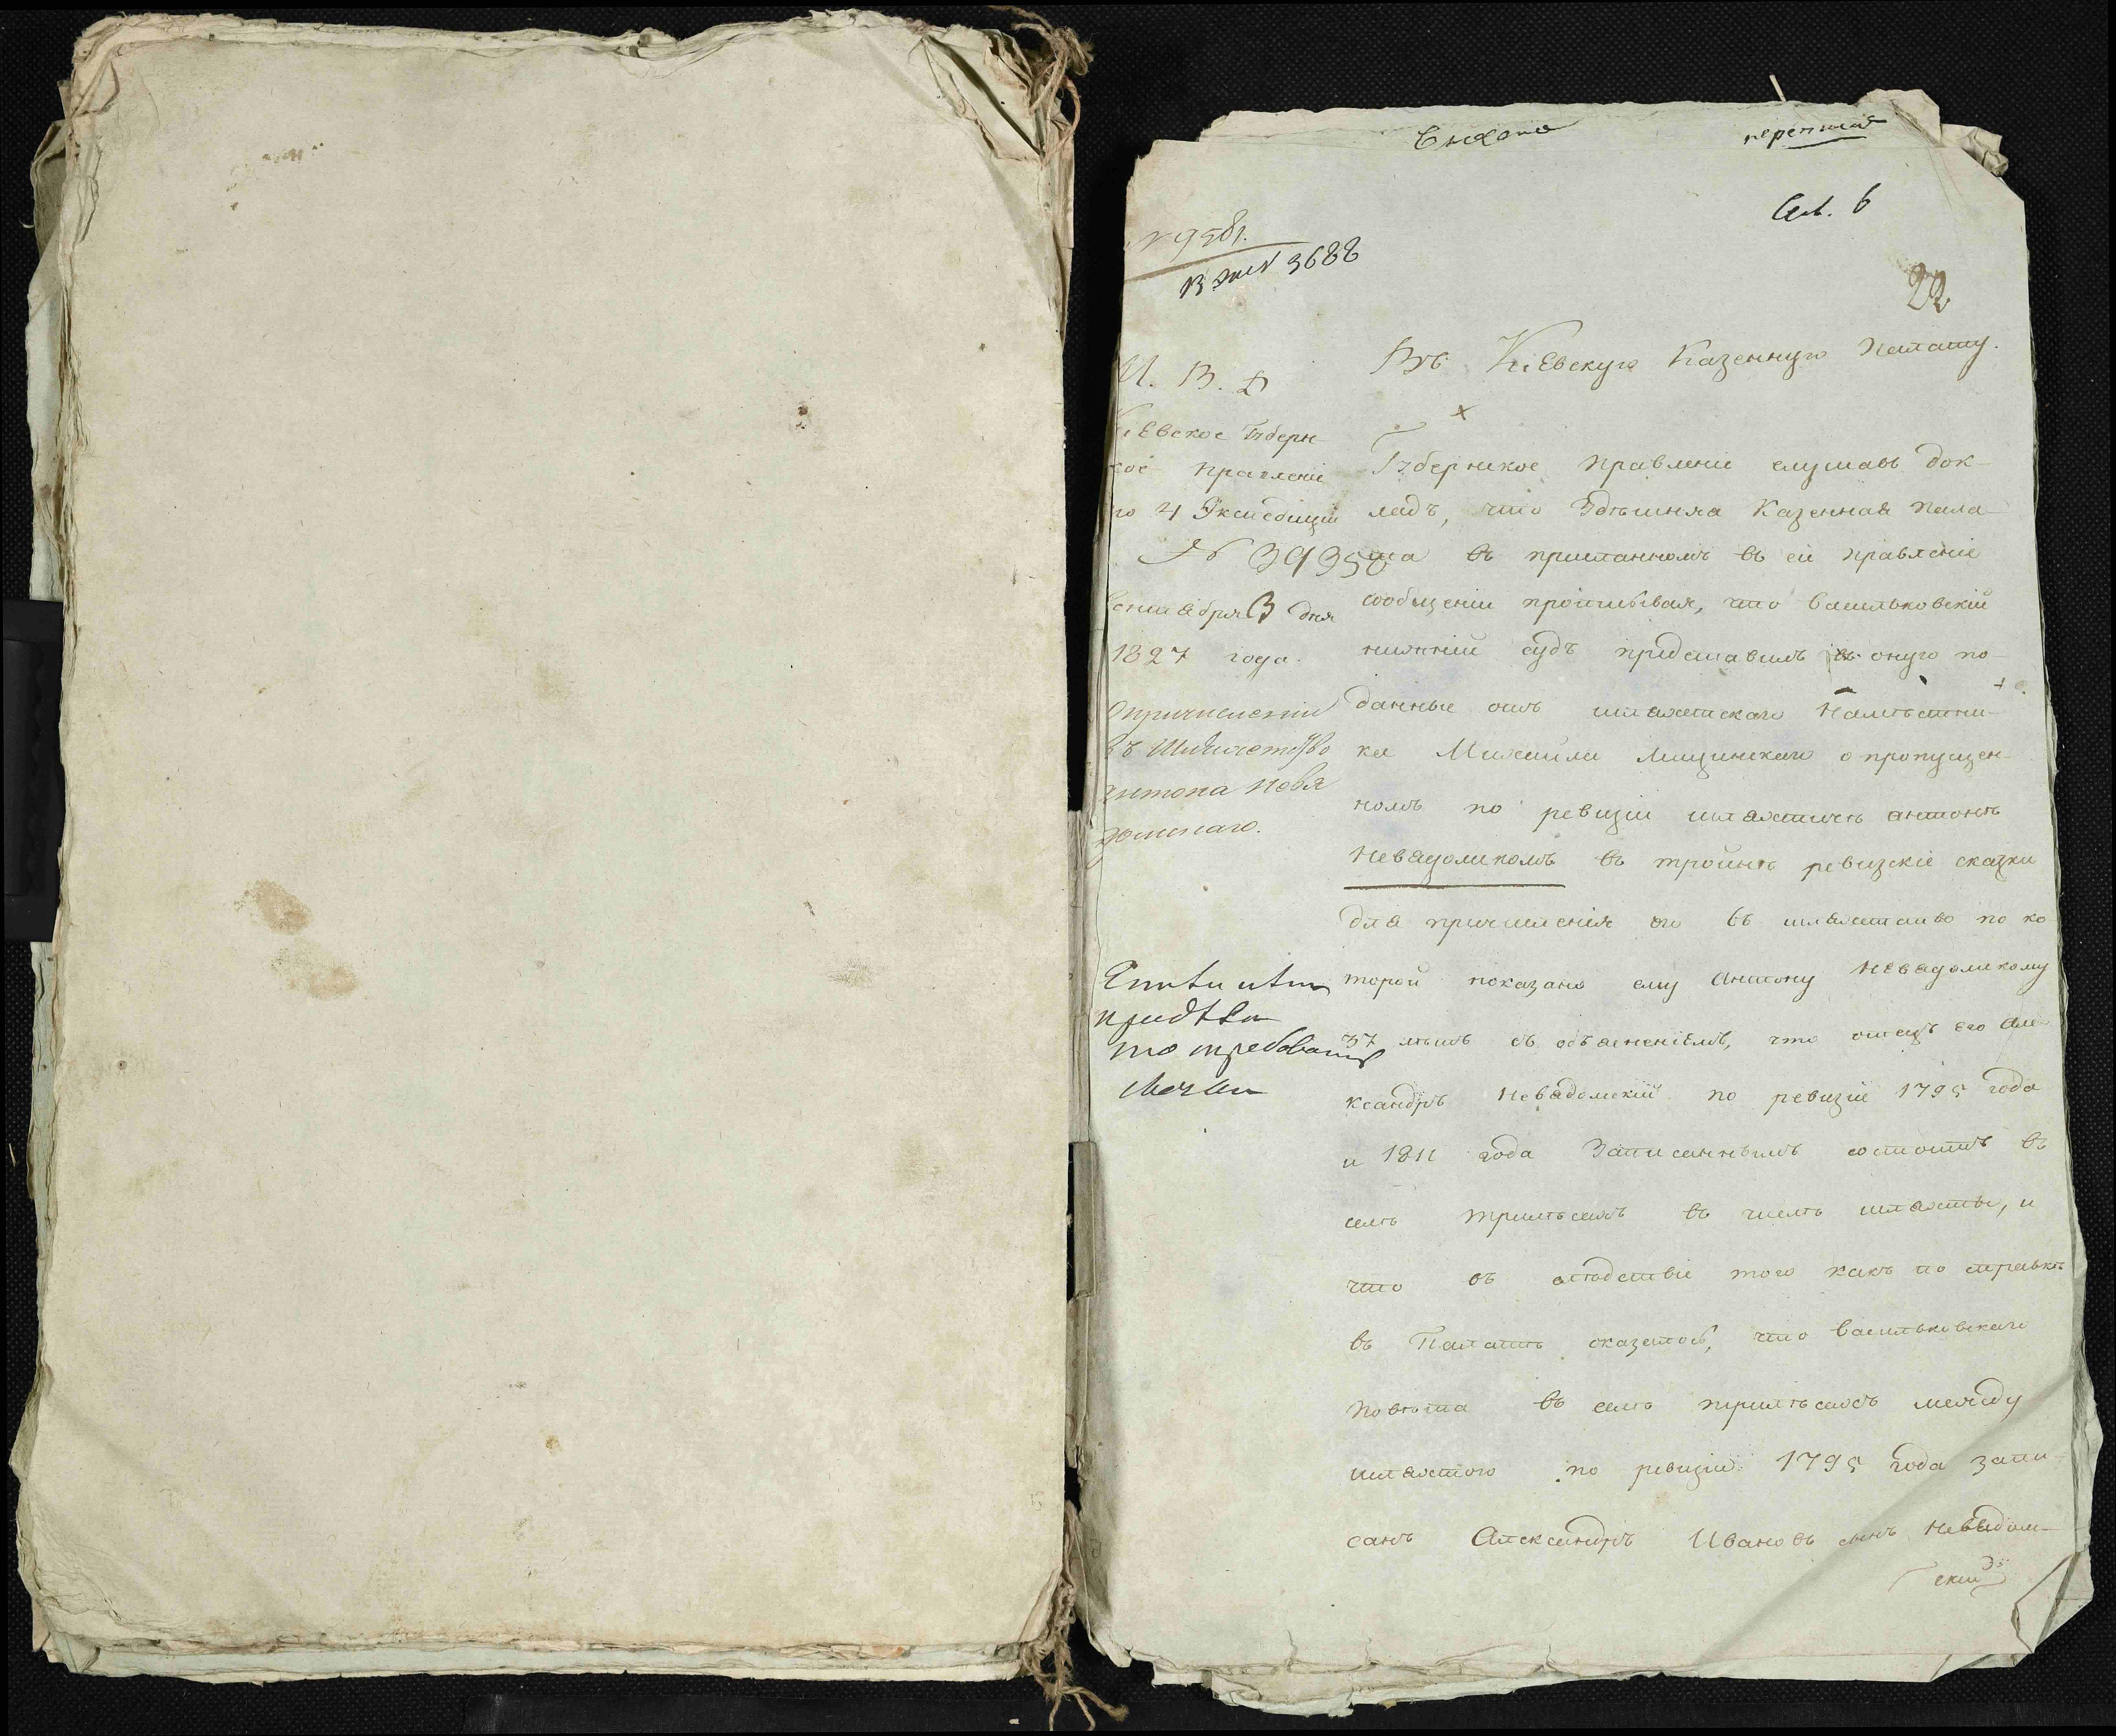 22
В Киевскую Казенную Палату.
М. В. Д
Киевское Губерн
ское Правление
по 4 Экспедиции
№ 39350
Сентября 3 дня
1827 года.
О причислении
въ Шляхетство
Антона Невя
домскаго.
Губернское Правление слушавъ док-
ладъ, что Здешняя Казенная Пала-
та въ присланномъ въ сие Правление
сообщении прописывая, что Васильковский
нижний судъ представилъ въ оную по-
данные отъ шляхетскаго Наместни-
ка Михайла о пропущен-
номъ по ревизии шляхтиче Антоне
Невядомскомъ въ тройне ревизские сказки
для причисления его въ шляхетство по ко
торой показано ему Антону Невядомскому
37 летъ съ объяснениемъ, что отецъ его Але-
ксандръ Невядомский по ревизие 1795 года
и 1811 года Записаннымъ состоитъ въ
селе Трилесахъ въ числе шляхты, и
что въ следствие того какъ по справке
въ Палате оказалось, что Васильковскаго
Повета въ селе Трилесахъ между
шляхтою по ревизии 1795 года запи-
санъ Александръ Ивановъ сынъ Невядом-
ский